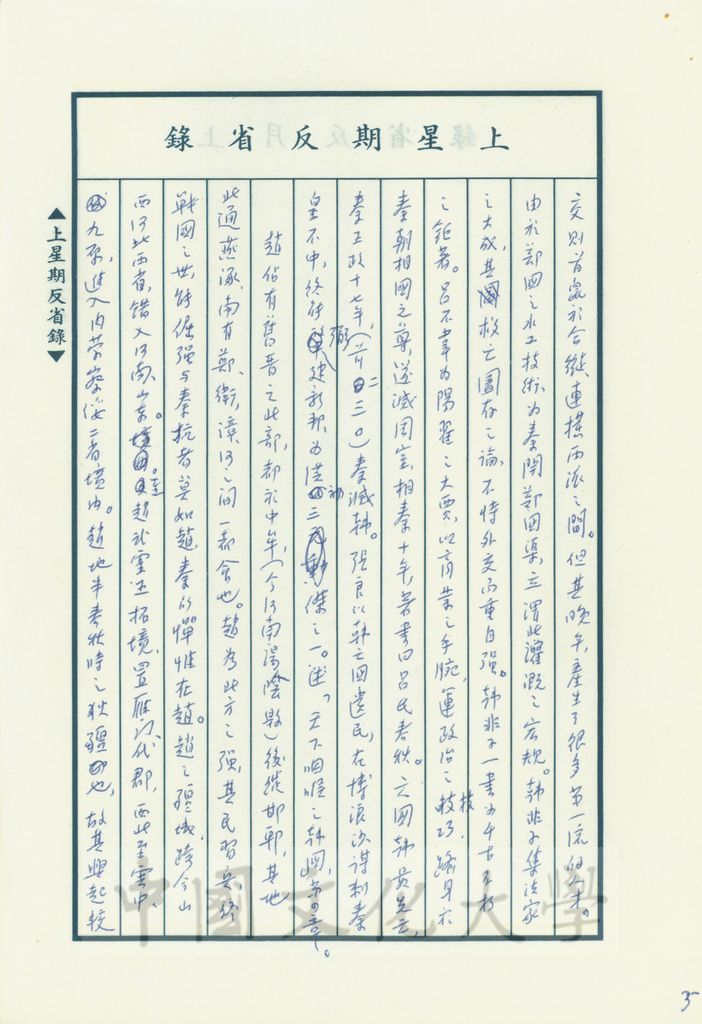 上星期反省錄
交則首鼠於合縱、連橫兩派之間。但其晚年,產生了很多第一流的人才。
由於鄭國之水工技術,為秦開鄭國渠,立渭北灌溉之宏規。韓非子集法家
之大成,其救亡圖存之論,不恃外交而重自強。韓非子一書為千古不朽
之鉅著。呂不韋為陽翟之大賈,以商業之手腕,運政治之技巧,躋身於
秦朝相國之尊,遂滅周室,相秦十年,著書曰呂氏春秋。六國韓最先亡,
秦王政十七年,(前二三〇)秦滅韓。張良以韓亡國遺民,在博浪沙謀刺秦
皇不中,終能翊建新邦,為漢初三傑之一。
趙佔有舊晉之北部,都於中牟,(今河南湯陰縣)後從邯鄲,其地
北通燕涿,南有鄭、衛,漳河之間一都會也。趙為北方之強,其民習兵,終
戰國之世,能倔強与秦抗者莫如趙,秦所憚惟在趙。趙之疆域,跨今山
西河北兩省,錯入河南、山東。至趙武靈王拓境,置雁門、代郡,西北至雲中、
九原,進入內蒙察綏二省境內。趙地半春秋時之狄疆也,故其興起較
▲上星期反省錄▼
中國文化大學
35